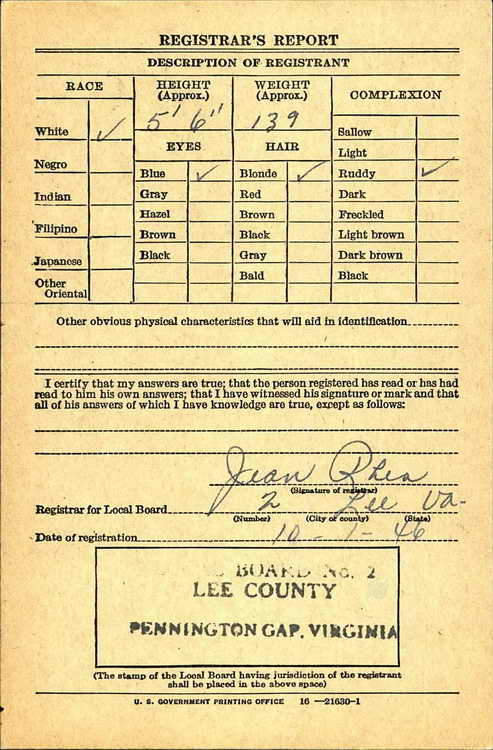 REGISTRAR'S REPORT
DESCRIPTION OF REGISTRANT
RACE
HEIGHT (Approx.)
WEIGHT (Approx.)
COMPLEXION
5' 6"
139
White ✓
Negro
Indian
Filipino
Japanese
Other Oriental
EYES
Blue ✓
Gray
Hazel
Brown
Black
HAIR
Blonde ✓
Red
Brown
Black
Gray
Bald
Sallow
Light
Ruddy ✓
Dark
Freckled
Light brown
Dark brown
Black
Other obvious physical characteristics that will aid in identification
I certify that my answers are true; that the person registered has read or has had
read to him his own answers; that I have witnessed his signature or mark and that
all of his answers of which I have knowledge are true, except as follows:
Jean Rhea
(Signature of registrar)
Registrar for Local Board 2 Lee Va-
(Number) (City or county) (State)
Date of registration 10-1-46
BOARD No. 2
LEE COUNTY
PENNINGTON GAP, VIRGINIA
(The stamp of the Local Board having jurisdiction of the registrant
shall be placed in the above space)
U. S. GOVERNMENT PRINTING OFFICE 16—21630-1